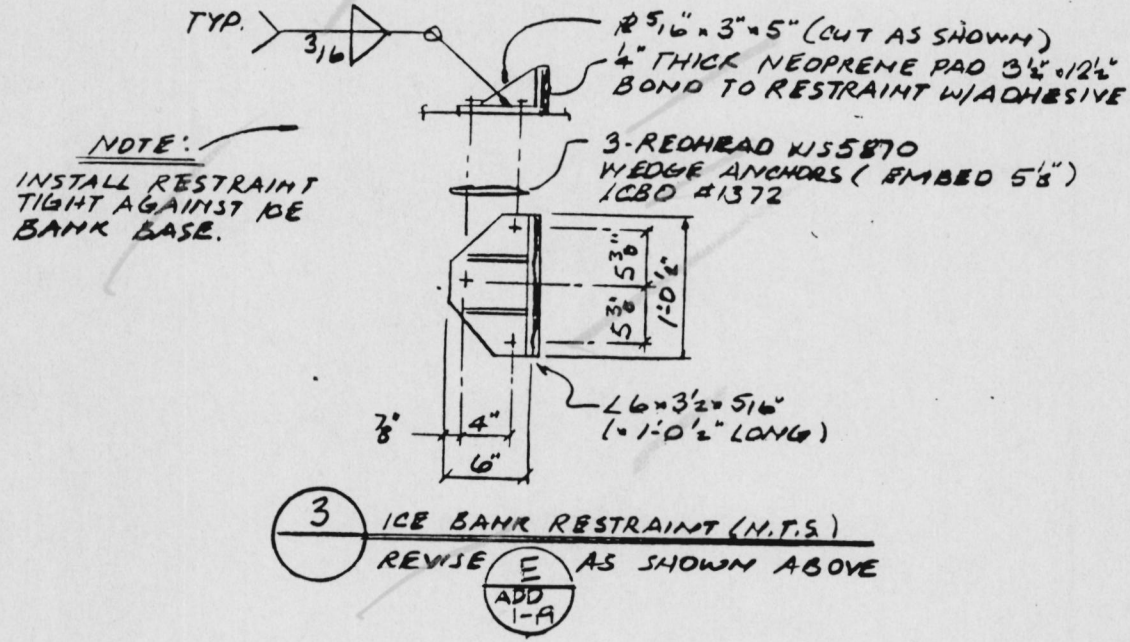 TYP.
3/16
℄ 5/16" x 3" x 5" (CUT AS SHOWN)
1/4" THICK NEOPRENE PAD 3 1/2" x 12 1/2"
BOND TO RESTRAINT W/ADHESIVE
NOTE:
INSTALL RESTRAINT
TIGHT AGAINST ICE
BANK BASE.
3-REDHEAD WS5870
WEDGE ANCHORS (EMBED 5 1/8")
ICBO #1372
5 3/8"
5 3/8"
1'-0 1/2"
L6 x 3 1/2 x 5/16"
(x 1'-0 1/2" LONG)
7/8"
4"
6"
3
ICE BANK RESTRAINT (N.T.S.)
REVISE
E
ADD
1-A
AS SHOWN ABOVE